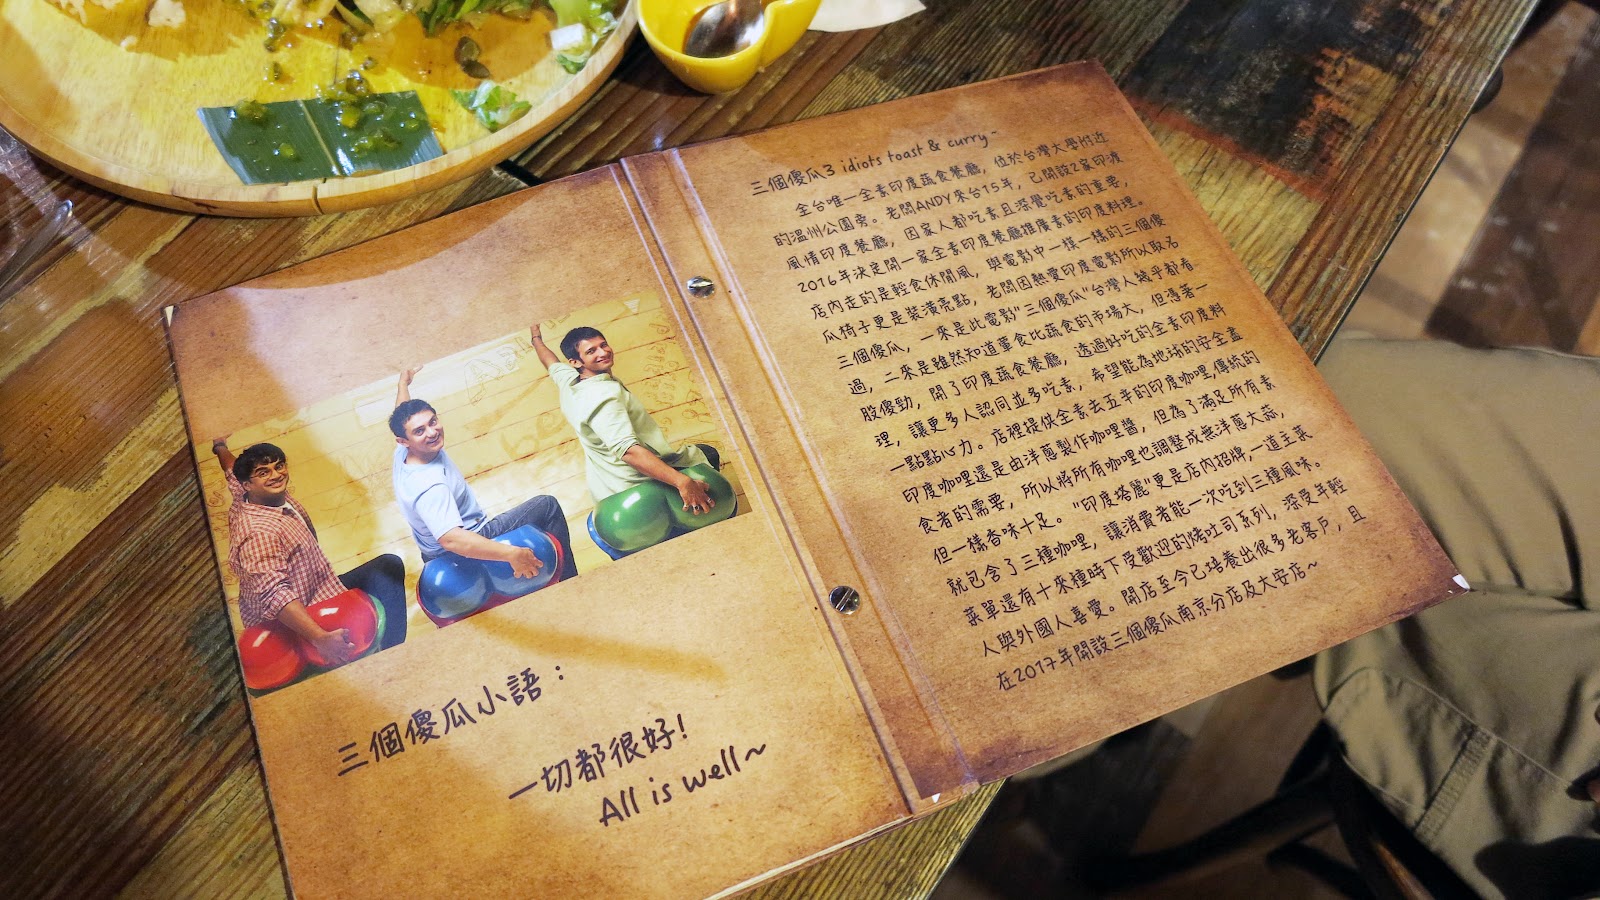 三個傻瓜小語：
一切都很好!
All is well~
三個傻瓜3 idiots toast & curry-
全台唯一全素印度蔬食餐廳，位於台灣大學附近
的溫州公園旁。老闆ANDY來台15年，已開設2家印渡
風情印度餐廳，因家人都吃素且深覺吃素的重要，
2016年決定開一家全素印度餐廳推廣素的印度料理。
店內走的是輕食休閒風，與電影中一樣一樣的三個傻
瓜椅子更是裝潢亮點，老闆因熱愛印度電影所以取名
三個傻瓜，一來是此電影"三個傻瓜"台灣人幾乎都看
過，二來是雖然知道葷食比蔬食的市場大，但憑著一
股傻勁，開了印度蔬食餐廳，透過好吃的全素印度料
理，讓更多人認同並多吃素，希望能為地球的安全盡
一點點心力。店裡提供全素去五辛的印度咖哩,傳統的
印度咖哩還是由洋蔥製作咖哩醬，但為了滿足所有素
食者的需要，所以將所有咖哩也調整成無洋蔥大蒜，
但一樣香味十足。"印度塔麗"更是店內招牌,一道主菜
就包含了三種咖哩，讓消費者能一次吃到三種風味。
菜單還有十來種時下受歡迎的烤吐司系列，深受年輕
人與外國人喜愛。開店至今已培養出很多老客戶，且
在2017年開設三個傻瓜南京分店及大安店~